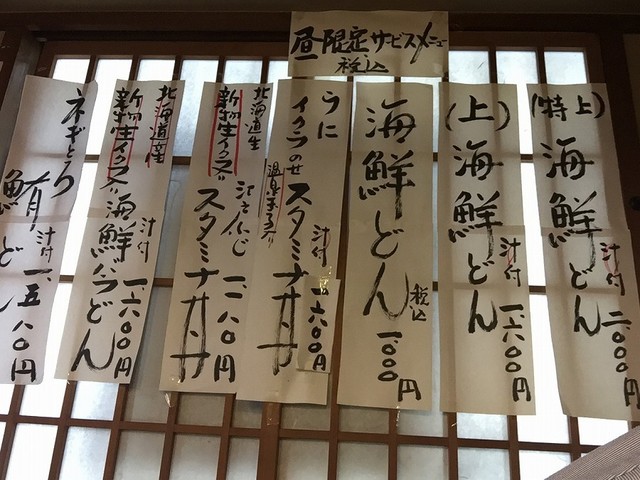 昼限定サービスメニュー
税込
(特上)海鮮どん
汁付
二、〇〇〇円
(上)海鮮どん
汁付
一、六〇〇円
海鮮どん
税込
一、〇〇〇円
うに
イクラのせスタミナ丼
温泉玉子入り
汁付
六〇〇円
北海道生
新物生イクラ入り
スタミナ丼
円
北海道産
新物生イクラ入り
海鮮バラどん
汁付
一、六〇〇円
ネギとろ
汁付